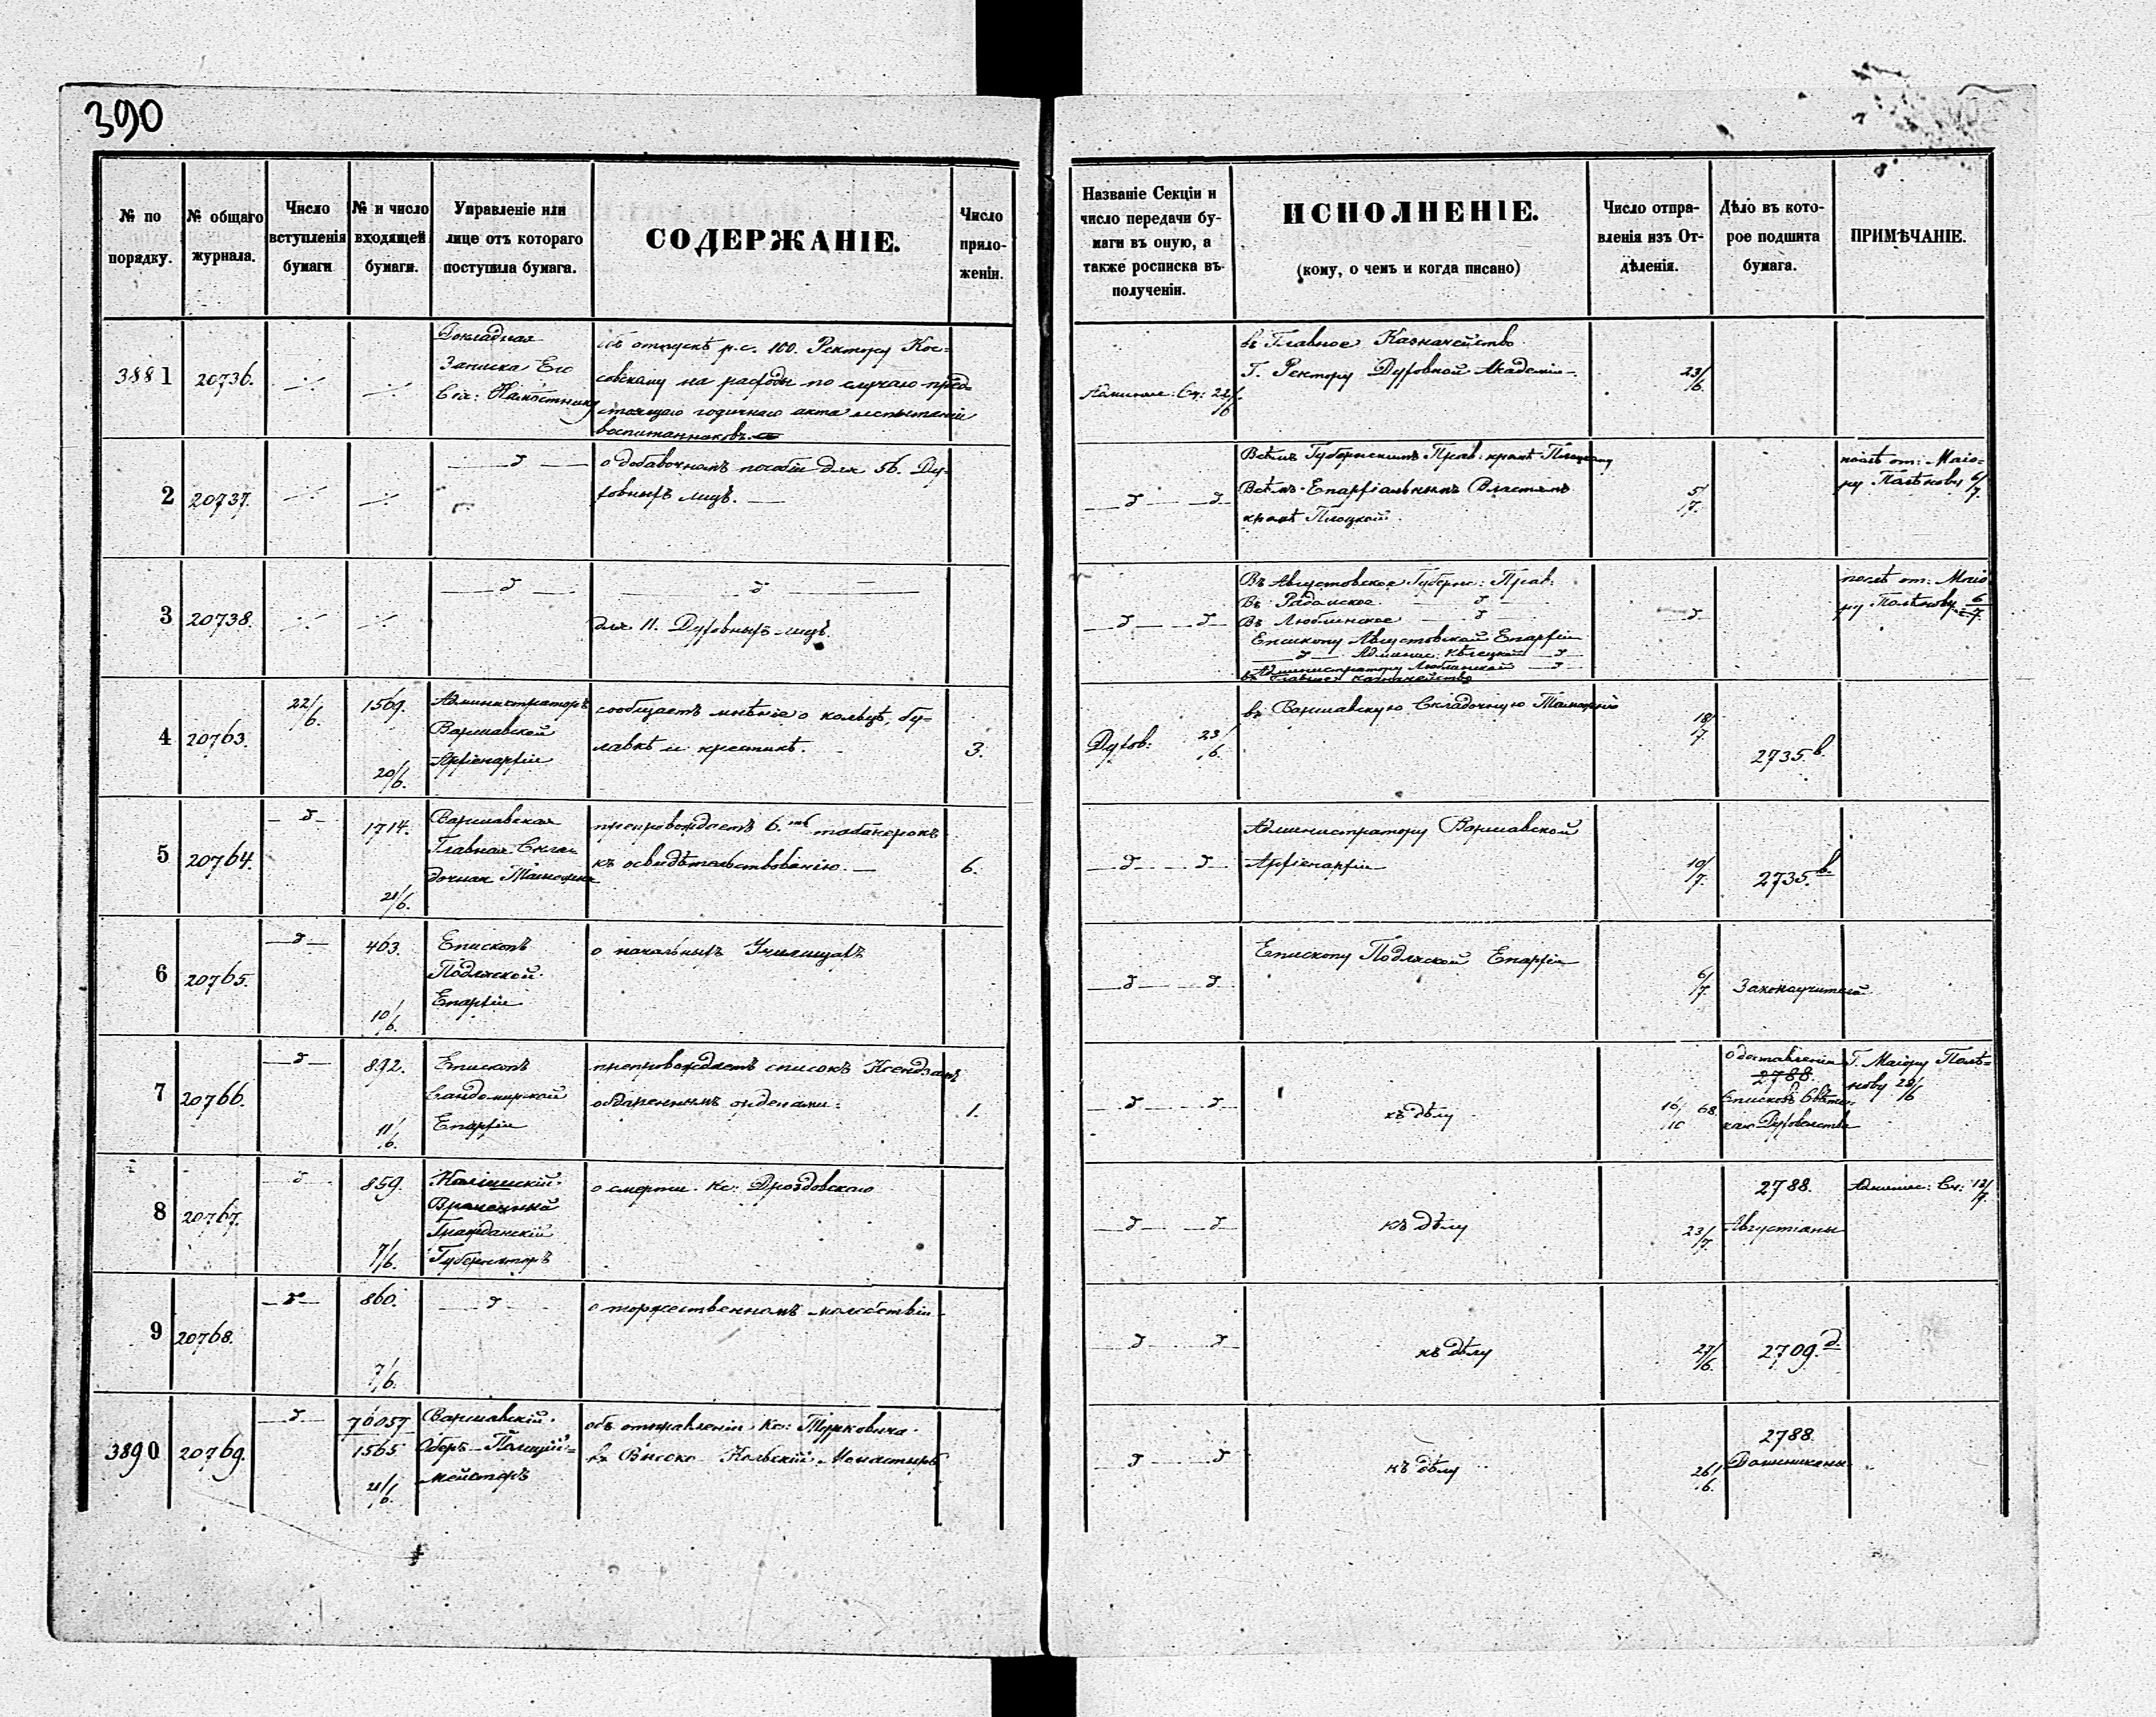 390
№ по порядку.
№ общаго журнала.
Число вступленія бумаги
№ и число входящей бумаги.
Управленіе или лице отъ котораго поступила бумага.
СОДЕРЖАНІЕ.
Число приложеній.
Названіе Секціи и число передачи бумаги въ оную, а также росписка въ полученіи.
ИСПОЛНЕНІЕ.
(кому, о чемъ и когда писано)
Число отправленія изъ Отдѣленія.
Дѣло въ которое подшита бумага.
ПРИМѢЧАНІЕ.
3881
20736.
Докладная
Записка Его
Сія: Намѣстнику
объ отпускѣ р.с. 100. Ректору Кос-
совскому на расходы по случаю пред-
стоящаго годичнаго акта испытаній
воспитанниковъ.
Админис: Сч: 22/6
въ Главное Казначейство
Г. Ректору Духовной Академіи
23/6.
2
20737.
д
о добавочномъ пособіи для 56. Ду-
ховныхъ лицъ.
д д
Всѣмъ Губернскимъ Прав: кромѣ Плоцкаго
Всѣмъ Епархіальнымъ Властямъ
кромѣ Плоцкой.
5/7.
послѣ от: Маіо-
ру Полѣнову 6/7.
3
20738.
д
д
для 11. Духовныхъ лицъ.
д д
Въ Августовское Губерн: Прав:
Въ Радомское д
Въ Люблинское д
Епископу Августовской Епархіи
д Админис: Кѣлецкой д
Администратору Люблинской д
въ Главное казначейство
д
послѣ от: Маіо
ру Полѣнову 6/7.
4
20763.
22/6.
1569.
20/6.
Администраторъ
Варшавской
Архіепархіи
сообщаетъ мнѣніе о кольцѣ, бу-
лавкѣ и крестикѣ.
3.
Духов: 23/6.
въ Варшавскую Складочную Таможню
18/7.
2735.в.
5
20764.
д
1714.
21/6.
Варшавская
Главная Скла-
дочная Таможня
препровождаетъ 6.ть табакерокъ
къ освидѣтельствованію.
6.
д д
Администратору Варшавской
Архіепархіи
10/7.
2735.в.
6
20765.
д
463.
10/6.
Епископъ
Подляской
Епархіи
о начальныхъ Училищахъ
д д
Епископу Подляской Епархіи
6/7.
Законоучителей
7
20766.
д
892.
11/6.
Епископъ
Сандомирской
Епархіи
препровождаетъ списокъ Ксендзамъ
одареннымъ орденами.
1.
д д
къ дѣлу
68.
о доставленіи
2788.
Духовенства
Г. Маіору Полѣ-
нову 28/6
8
20767.
д
859.
7/6.
Калишскій
Временный
Гражданскій
Губернаторъ
о смерти Кс: Дроздовскаго
д д
къ дѣлу
23/7.
2788.
Августіаны
Админис: Сч: 12/7.
9
20768.
д
860.
7/6.
д
о торжественномъ молебствіи
д д
къ дѣлу
27/6.
2709.д.
3890
20769.
д
70057
1565
21/6.
Варшавскій
Оберъ-Полицій-
мейстеръ
объ отправленіи Кс: Турковича
въ Высоко-Кольскій Монастырь
д д
къ дѣлу
26/6.
2788.
Доминиканы